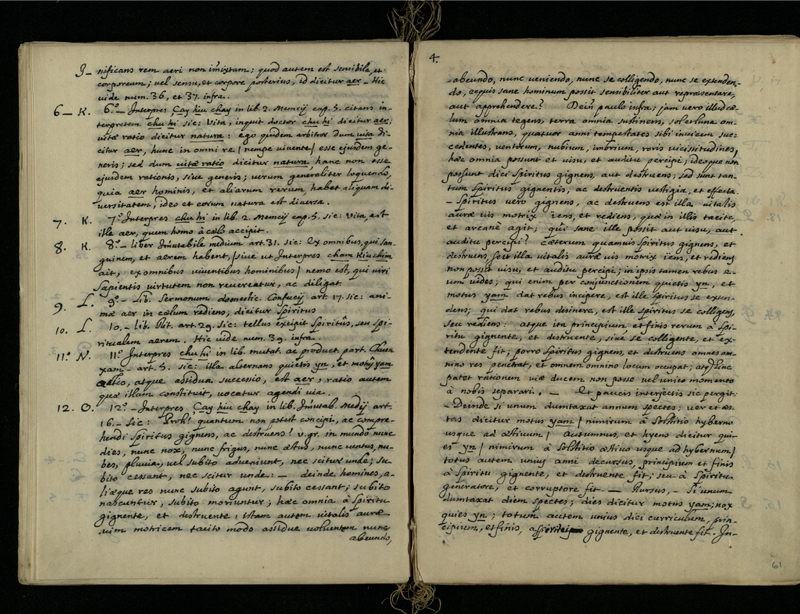 I_ nificans rem aeri non immixtam; quod autem est sensibile, et
corporeum; vel sensu, et corpore porterius, id dicitur aer. Hic
vide num. 36, et 37. infra.
6_ K. 6.º_ Interpres Cay hiu chay in lib. 2. Memcij cap. 5. citans in-
terpretem chu hi sic: Vita, inquit doctor chu hi dicitur aer;
vitæ ratio dicitur natura: ego quidem arbitror dum vita di-
citur aer, hunc in omni re [nempe vivente] esse ejusdem ge-
neris; sed dum vitæ ratio dicitur natura hanc non esse
ejusdem rationis, sive generis; verum generaliter loquendo,
quia aer hominis, et aliarum rerum, habet aliquam di-
versitatem, ideo et eorum natura est diversa.
7. K. 7.º Interpres chu hi in lib. 2. Memcij cap. 5. sic: vita, est
ille aer, quem homo à cælo accipit.
8. K. 8.º_ liber Immutabile medium art. 31. sic: Ex omnibus, qui san-
guinem, et aerem habent, [sive ut Interpres cham kiu chim
ait, ex omnibus viventibus hominibus] nemo est, qui viri
Sapientis virtutem non revereatur, ac diligat
9. L. 9.º_ Lib. Sermonum domestic. Confucij art. 17. sic: ani-
mæ aer in cælum rediens, dicitur Spiritus
10. L. 10._ lib. Rit. art. 29. sic: tellus excipit Spiritûs, seu spi-
ritualem aerem. Hic vide num. 39. infra.
11.º N. 11.º Interpres chu hi in lib. mutat. ac product. part. Chuen
xam_ art. 5. sic: illa alternans quietis yn, et motûs yam
atque assidua successio, est aer; ratio autem
quæ illum constituit, vocatur agendi via.
12. O. 12.º_ Interpres Cay hiu chay in lib. Immutab. Medij art.
16._ sic: Proh! quantum non potest concipi, ac compre-
hendi Spiritus gignens, ac destruens! v. gr. in mundo nunc
dies, nunc nox, nunc frigus, nunc æstus, nunc ventus, nu-
bes, pluvia, vel subito adveniunt, nec scitur unde; su-
bito cessant, nec scitur unde: _ deinde homines, a-
liæque res nunc subito agunt, subito cessant; subito
nascuntur, subito moriuntur; hæc omnia à Spiritu
gignente, et destruente; illam autem vitalis auræ
vim motricem tacito modo assidue volventem nunc
abeundo,
4.
abeundo, nunc veniendo, nunc se colligendo, nunc se extenden-
do, ecquis sane hominum possit sensibiliter aut repræsentare
aut apprehendere? Dein paulo infra; jam vero illud cæ-
lum omnia tegens, terra omnia sustinens, sol et lunæ om-
nia illustrans, quatuor anni tempestates sibi invicem suc-
cedentes, ventorum, nubium, imbrium, roris vicissitudines,
hæc omnia possunt et visu, et auditu percipi; ideoque non
possunt dici Spiritus gignens, aut destruens; sed sunt tan-
tum Spiritus gignentis, ac destruentis vestigia, et effecta
_ Spiritus vero gignens, ac destruens est illa vitalis
auræ vis motrix iens, et rediens, quæ in illis tacite,
et arcane agit; qui sane ille possit aut visu, aut
auditu percipi? Cæterum quamvis Spiritus gignens, et
destruens, seu illa vitalis auræ vis motrix iens, et rediens
non possit visu, et auditu percipi; in ipsis tamen rebus e-
um vides; qui enim per conjunctionem quietis yn, et
motus yam dat rebus incipere, est ille Spiritus se exten-
dens; qui dat rebus desinere, est ille spiritus se colligens,
seu rediens: atque ita principium et finis rerum à Spi-
ritu gignente, et destruente, sive se colligente, et ex-
tendente fit; porro Spiritus gignens, et destruens omnes om-
nino res penetrat, et omnem omnino locum occupat; atque hinc
patet rationem viæ ducem non posse vel unico momento
à nobis separari. _ Et paucis interjectis sic pergit.
_ Deinde si unum dumtaxat annum spectes; ver et æs-
tas dicitur motus yam [nimirum à Solstitio hyberno
usque ad æstivum] Autumnus, et hyems dicitur qui-
es yn [nimirum à Solstitio æstivo usque ad hybernum]
totus autem unius anni decursus, principium et finis
à Spiritu gignente, et destruente fit; seu à Spiritu
generatore, et corruptore fit. _ Rursus, _ Si unum
dumtaxat diem spectes; dies dicitur motus yam; nox
quies yn; totum autem unius diei curriculum, prin-
cipium, et finis, a Spiritu gignente, et destruente fit. In-
61